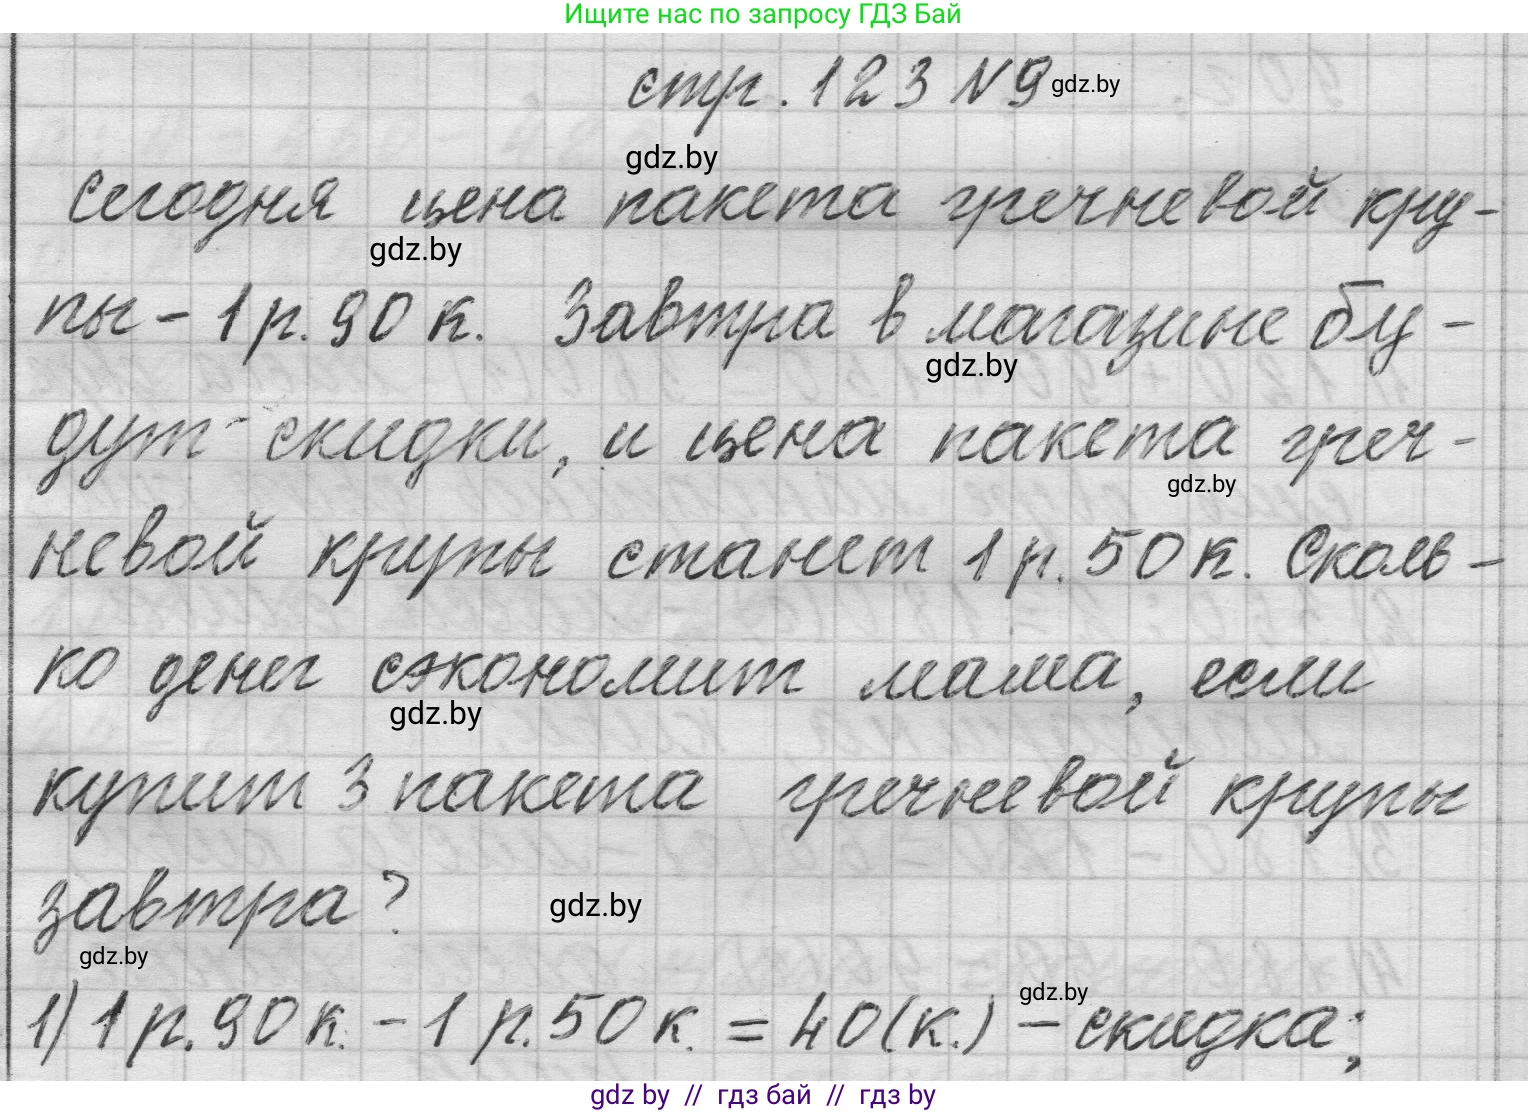 Ищите нас по запросу ГДЗ Бай
стр. 123 N9 gdz.by
gdz.by
Сегодня цена пакета гречневой кру-
gdz.by
пы - 1 р. 90 к. Завтра в магазине бу-
gdz.by
дут скидки, и цена пакета греч-
gdz.by
невой крупы станет 1 р. 50 к. Сколь-
ко денег сэкономит мама, если
gdz.by
купит 3 пакета гречневой крупы
завтра?
gdz.by
gdz.by
gdz.by
1) 1 р. 90 к. - 1 р. 50 к. = 40 (к.) - скидка;
gdz by // гдз бай // гдз by